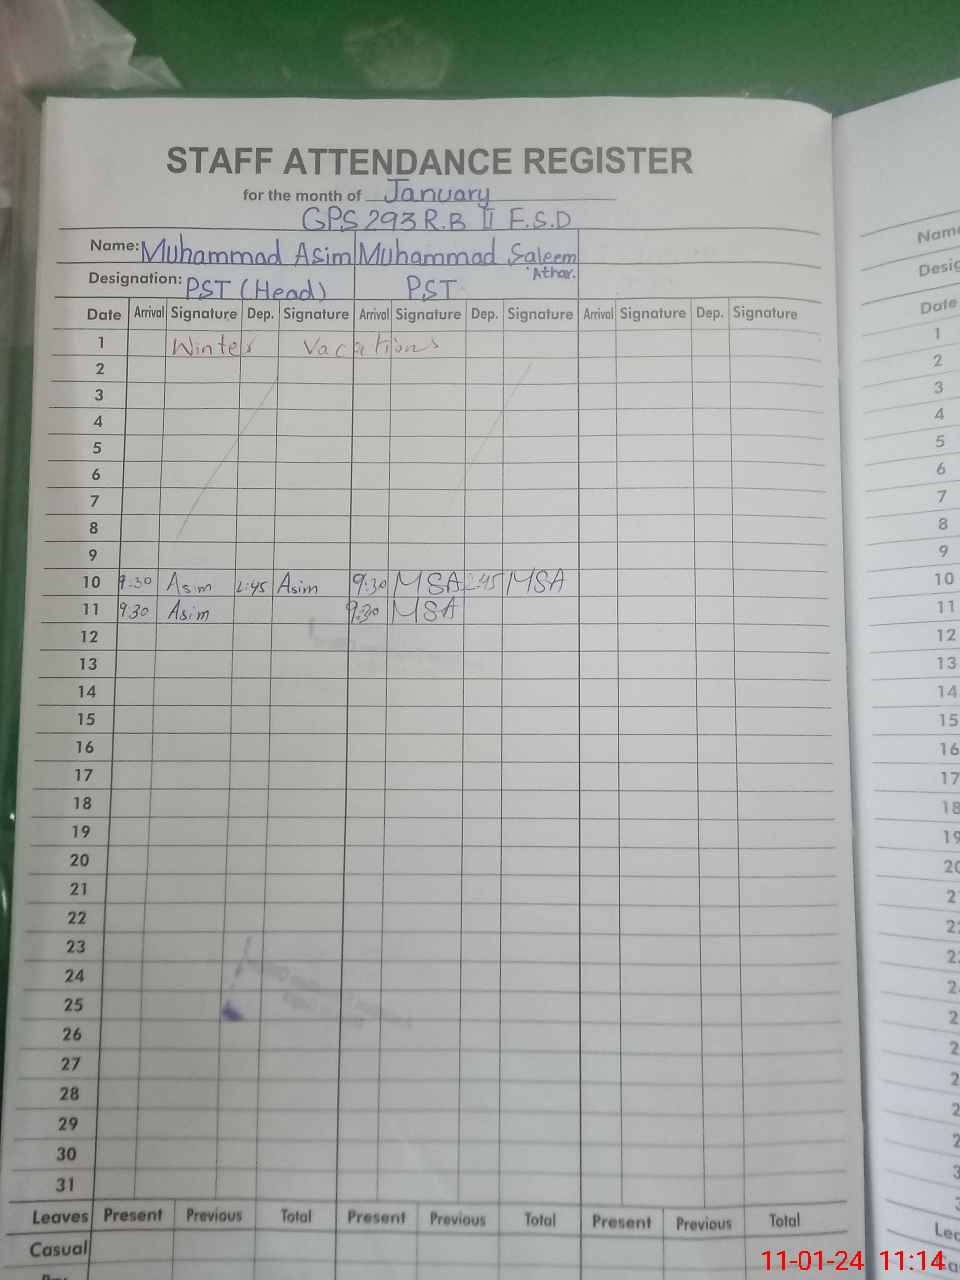 STAFF ATTENDANCE REGISTER
for the month of January
GPS 293 R.B II F.S.D
Name: Muhammad Asim Muhammad Saleem
Athar.
Designation: PST (Head) PST
Date Arrival Signature Dep. Signature Arrival Signature Dep. Signature Arrival Signature Dep. Signature
1 Winter Vacations
2
3
4
5
6
7
8
9
10 9:30 Asim 2:45 Asim 9:30 MSA 2:45 MSA
11 9:30 Asim 9:30 MSA
12
13
14
15
16
17
18
19
20
21
22
23
24
25
26
27
28
29
30
31
Leaves Present Previous Total Present Previous Total Present Previous Total
Casual
Date
1
2
3
4
5
6
7
8
9
10
11
12
13
14
15
16
17
18
19
11-01-24 11:14